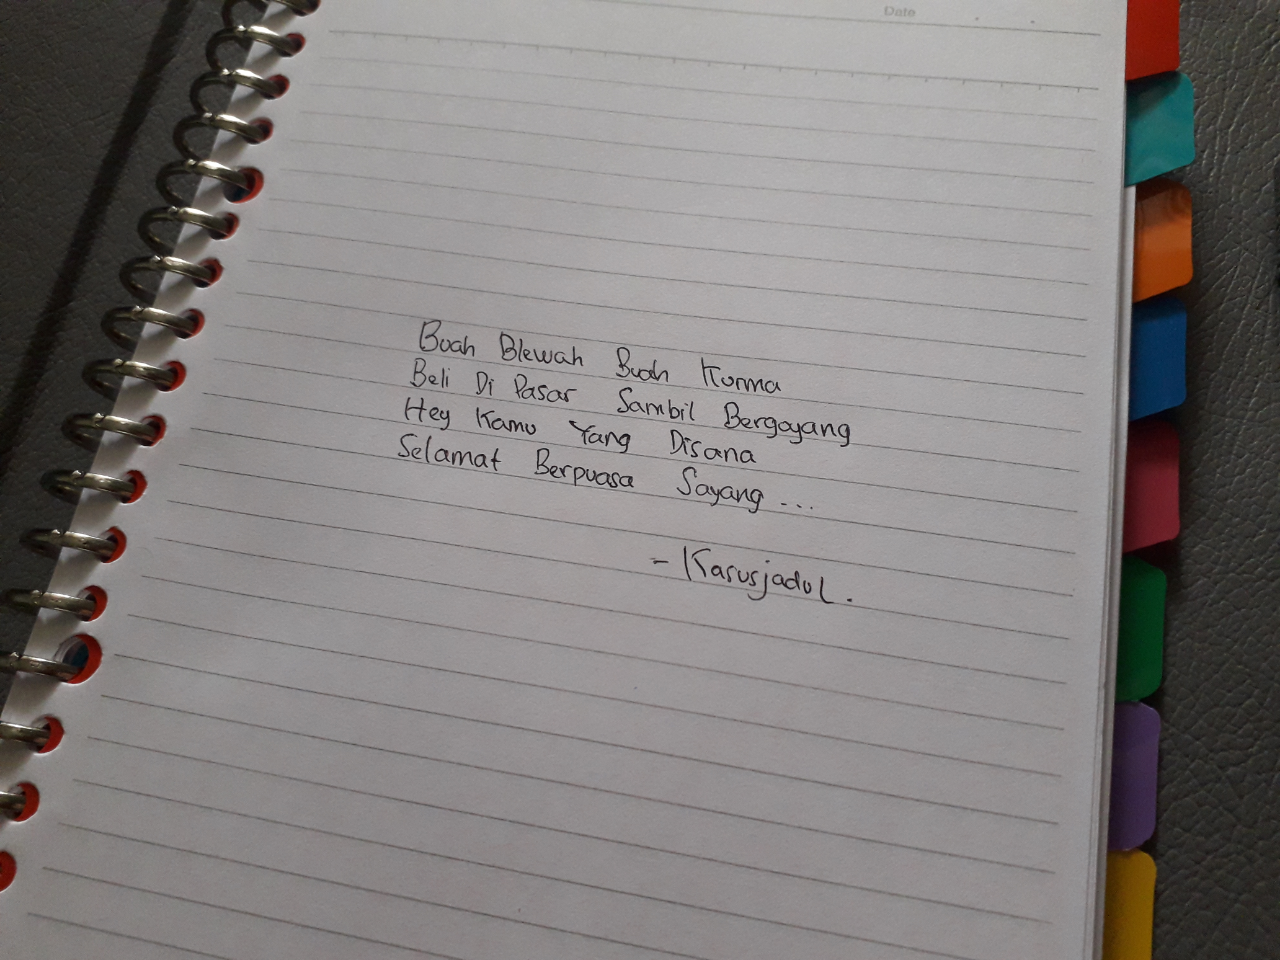 Date
Buah Blewah Buah Kurma
Beli Di Pasar Sambil Bergoyang
Hey Kamu Yang Disana
Selamat Berpuasa Sayang ...
- Karusjadul.